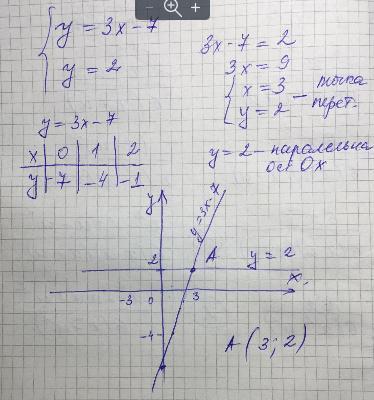 y = 3x - 7
y = 2
3x - 7 = 2
3x = 9
x = 3
y = 2 — точка перет.
y = 3x - 7
x | 0 | 1 | 2
y | -7 | -4 | -1
y = 2 - паралельна
осі Ox
y
y = 3x - 7
A
y = 2
2
x
-3 0 3
-4
A (3; 2)